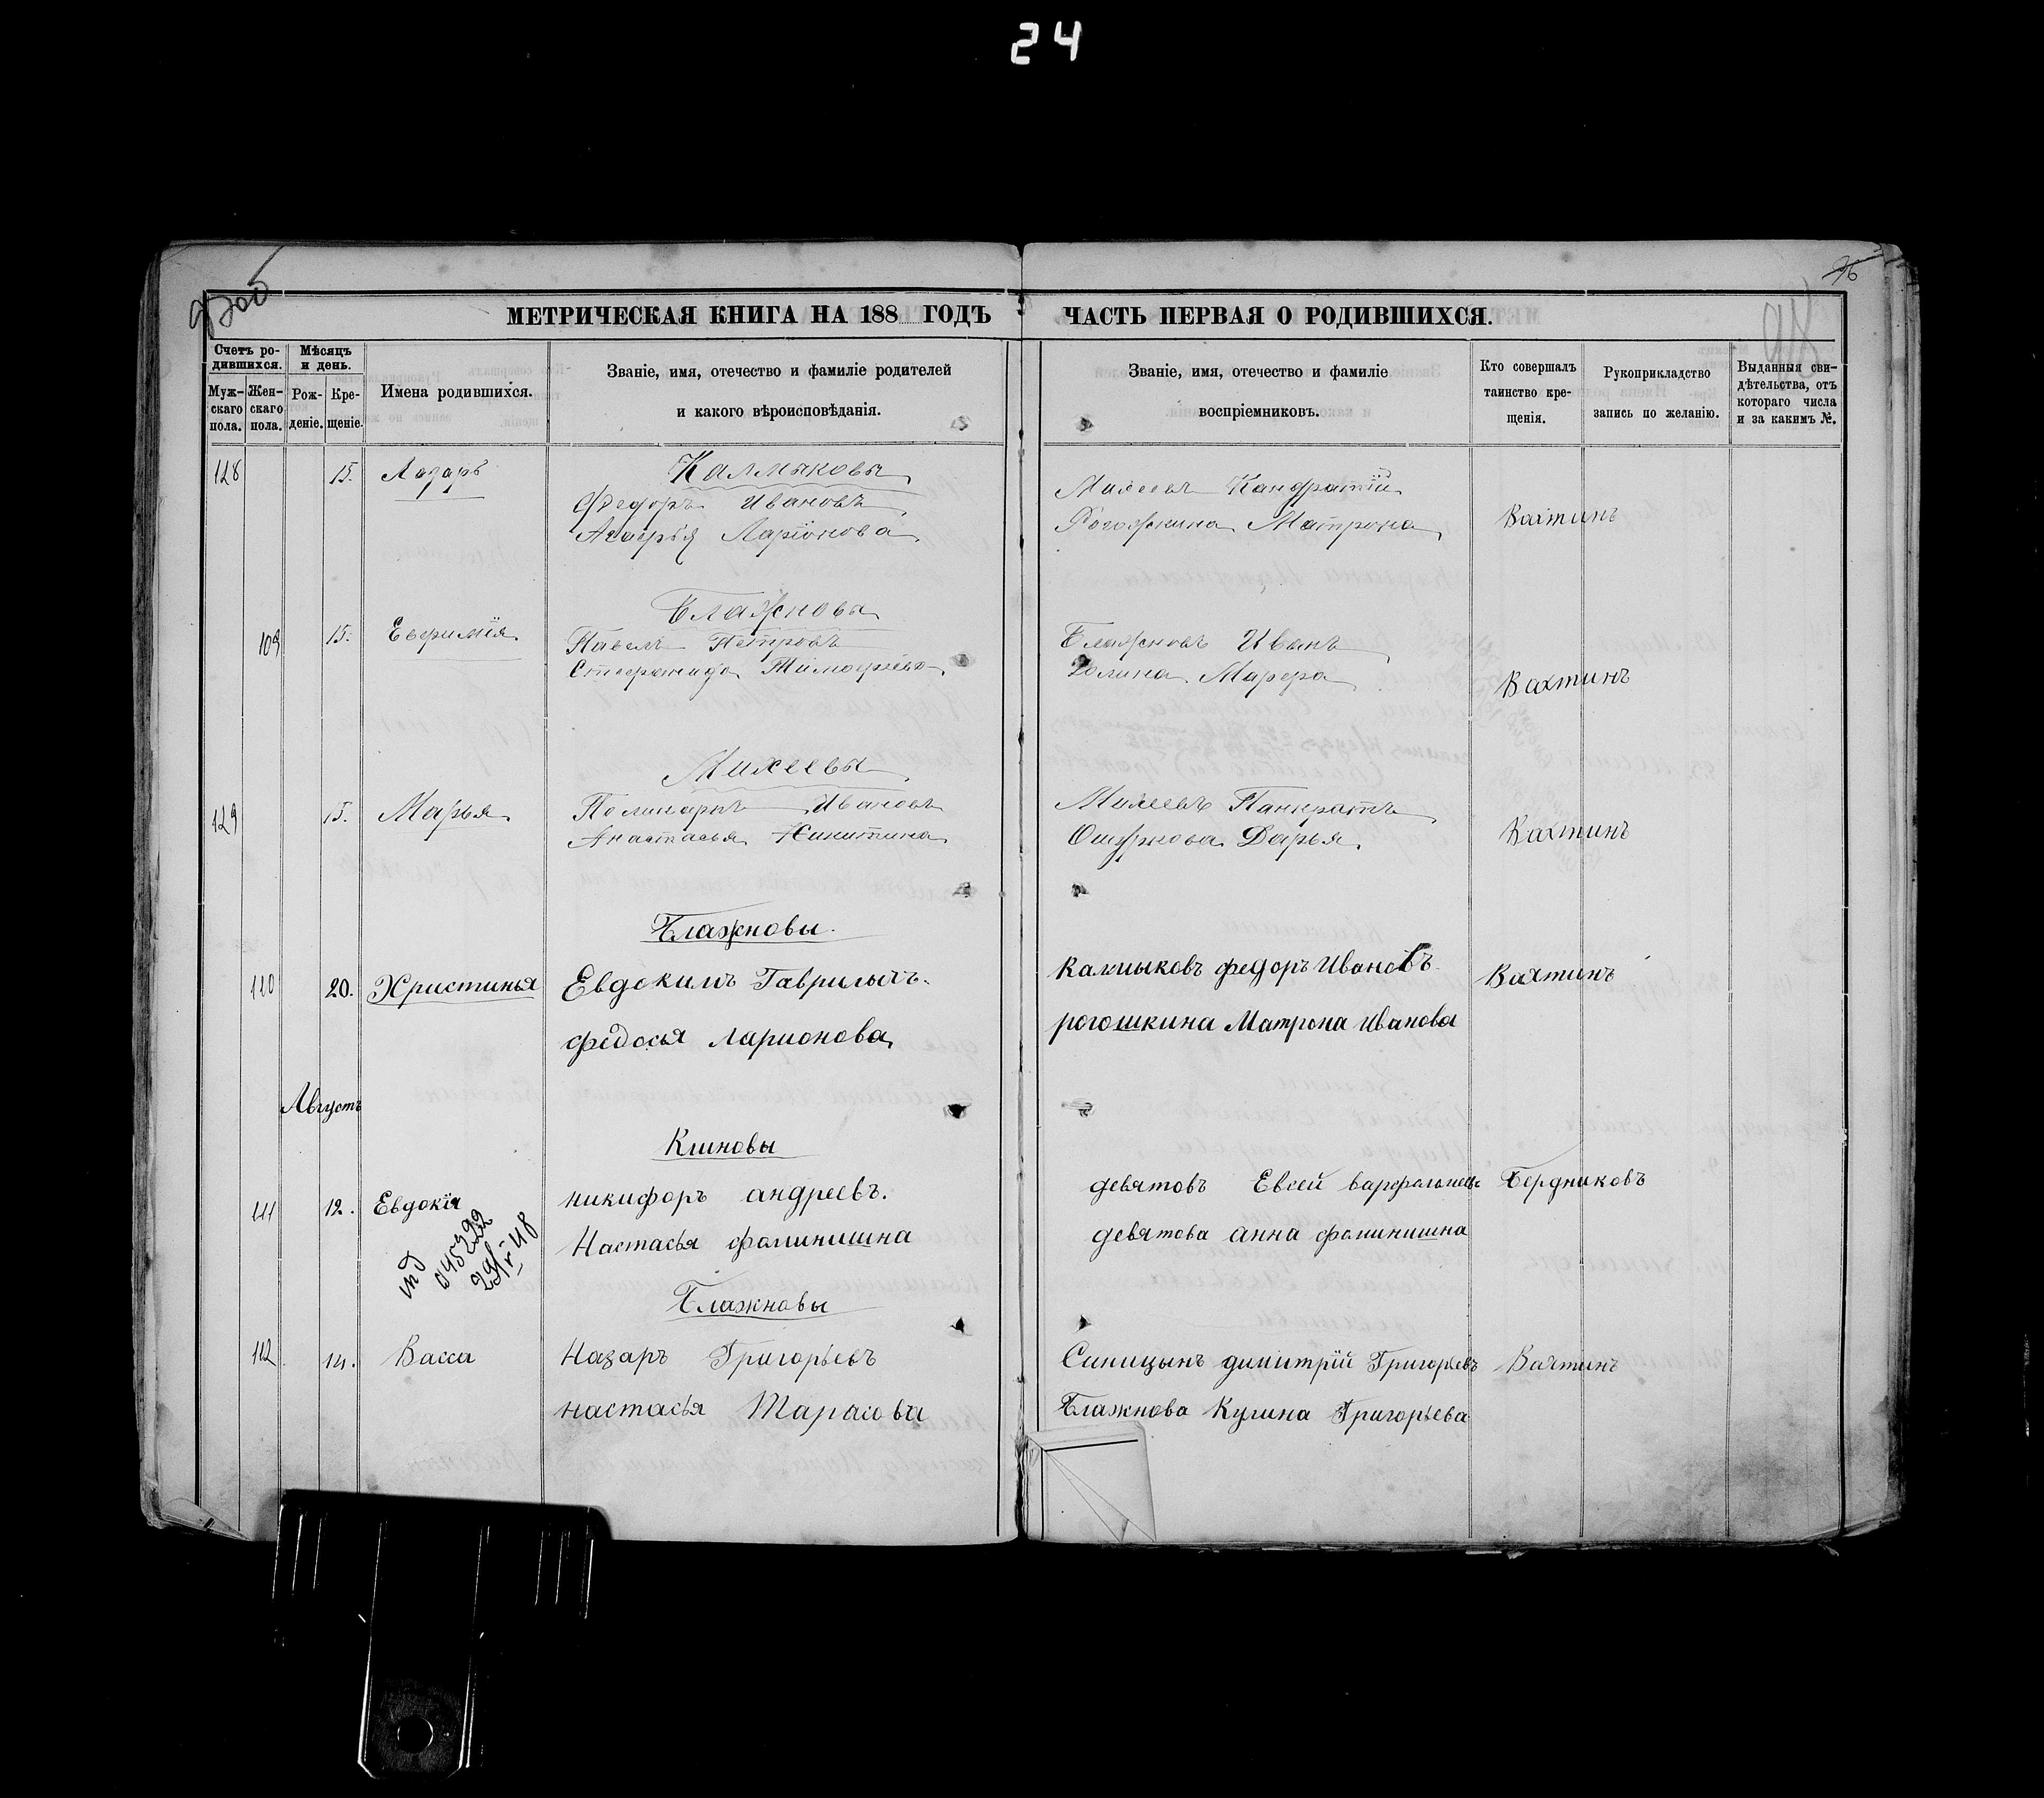 24
96
МЕТРИЧЕСКАЯ КНИГА НА 188 ГОДЪ
ЧАСТЬ ПЕРВАЯ О РОДИВШИХСЯ.
Счетъ ро-
дившихся.
Муж-
скаго
пола.
Жен-
скаго
пола.
Мѣсяцъ
и день.
Рож-
деніе.
Кре-
щеніе.
Имена родившихся.
Званіе, имя, отечество и фамиліе родителей
и какого вѣроисповѣданія.
Званіе, имя, отечество и фамиліе
воспріемниковъ.
Кто совершалъ
таинство кре-
щенія.
Рукоприкладство
запись по желанію.
Выданныя сви-
дѣтельства, отъ
котораго числа
и за какимъ №.
Калмыковы
128 15. Лазарь
Федоръ Ивановъ
Агафья Ларіонова
Михеевъ Кандратій
Рогожкина Матрона
Вахтинъ
Блажнова
109 15. Евфимія
Павелъ Петровъ
Стефанида Тимофѣева
Блажновъ Иванъ
Марфа
Вахтинъ
Михеевы
129 15. Марья
Поликарпъ Ивановъ
Анастасья Никитина
Михеевъ Панкратъ
Ошуркова Дарья
Вахтинъ
Блажновы.
110 20. Христинья
Евдокимъ Гаврилычъ.
федосья ларионова
Калмыковъ федоръ Ивановъ
рогошкина Матрона Иванова
Вахтинъ
Августъ
Клиновы
111 12. Евдокія
никифоръ андреевъ.
Настасья фоминишна
девятовъ Евсей
девятова анна фоминишна
Бердниковъ
045292
Блажновы
112 14. Васса
Назаръ Григорьевъ
настасья Тарасова
Синицынъ димитрій Григорьевъ
Блажнова Кулина Григорьева
Вахтинъ